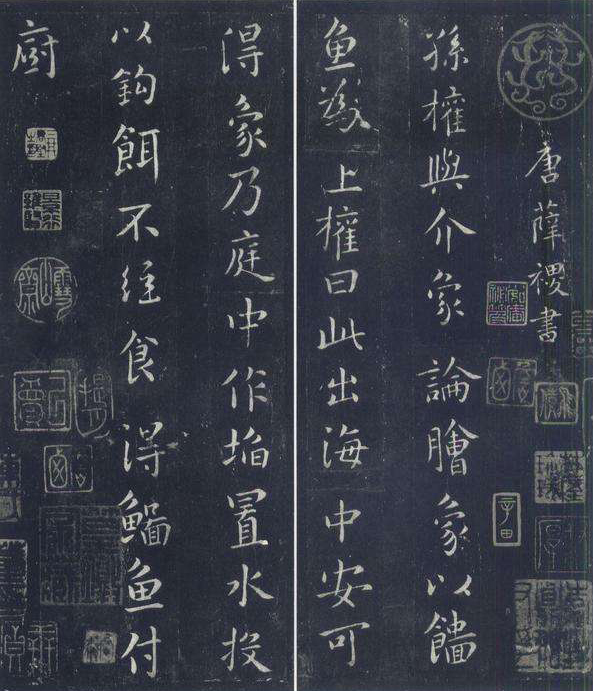 唐薛稷書
孫權與介象論膾象以鯔
鱼為上權曰此出海中安可
得象乃庭中作埳置水投
以鈎餌不経食得鯔鱼付
廚